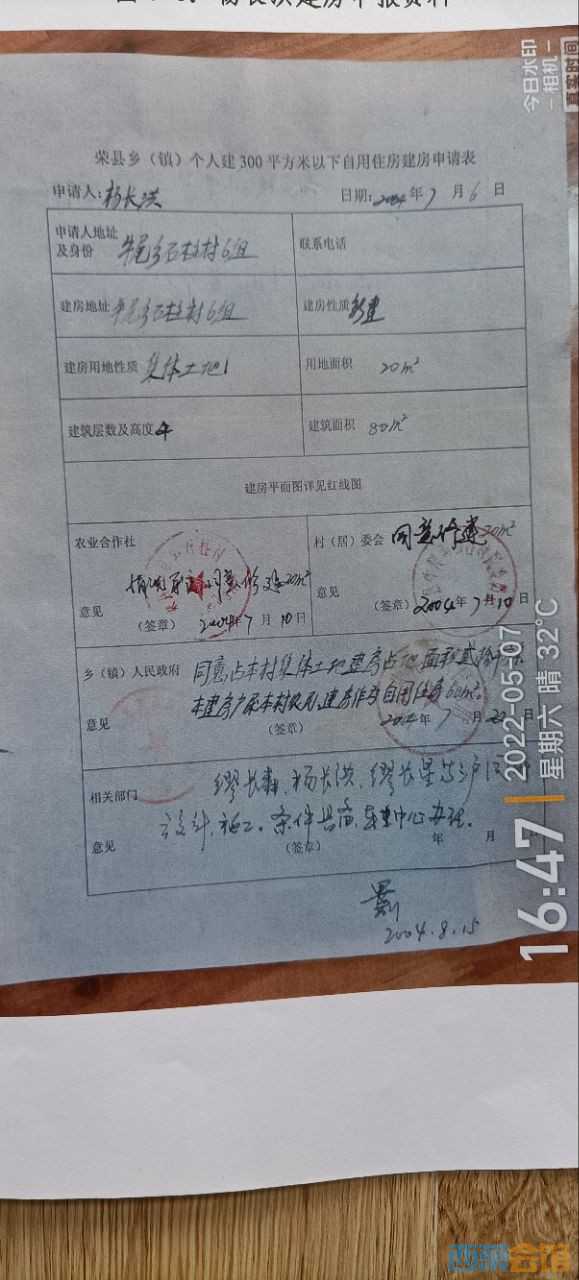 荣县乡（镇）个人建300平方米以下自用住房建房申请表
申请人：杨长洪 日期：2004年7月6日
申请人地址及身份 牛尾乡石柱村6组 联系电话
建房地址 牛尾乡石柱村6组 建房性质 新建
建房用地性质 集体土地 用地面积 20m²
建筑层数及高度 4 建筑面积 80m²
建房平面图详见红线图
农业合作社 同意修建20m²
意见 （签章） 2004年7月10日
村（居）委会 同意修建20m²
意见 （签章） 2004年7月10日
乡（镇）人民政府 同意占本村集体土地建房占地面积贰拾
本建房户属本村农户，建房作为自用住房
意见 （签章） 2004年7月22日
相关部门 缪长春、杨长洪、缪长星
设计、施工、条件具备，中心办理。
意见 （签章） 年 月
2004.8.15
今日水印
相机
真实时间
16:47
2022-05-07
星期六 晴 32℃